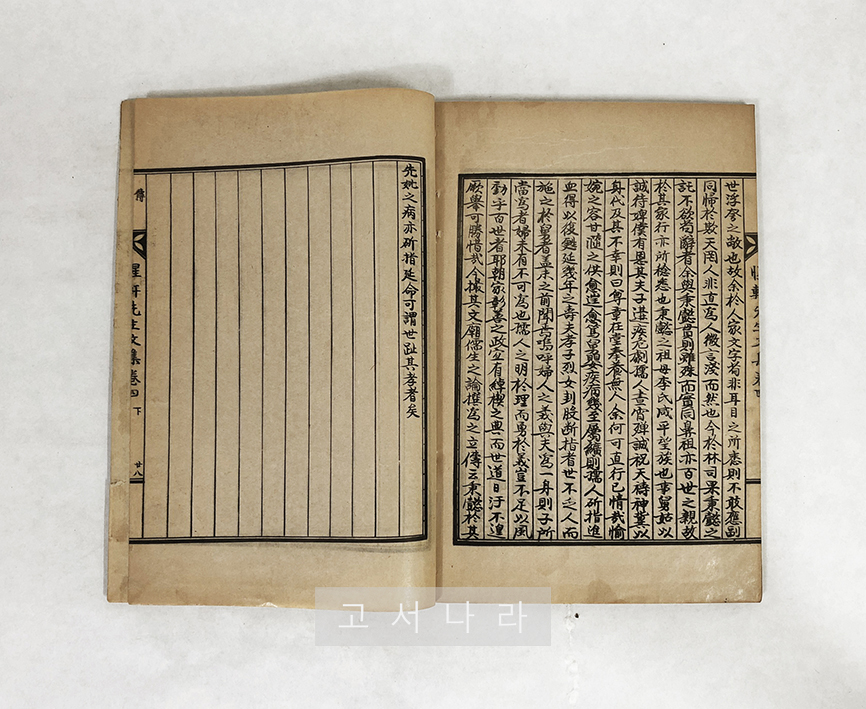 世浮夸之敝也故余於人家文字苟非耳目之所悉則不敢應副
同歸於欺天罔人非直爲人微言淺而然也今於林司果秉懿之
託不欲苟辭者余與秉懿晶則雖殊而實同鼻祖亦百世之親故
於其家行亦所稔悉也秉懿之祖母李氏咸平望族也事舅姑以
誠待婢僕有恩其夫子遘疾危劇孺人晝宵殫誠祝天禱神冀以
身代及其不幸則曰尊章在堂奉養無人余何可直行己情哉愉
婉之容甘瀡之供愈往愈篤舅嬰疾病幾至屬纊則孺人斫指進
血得以復甦延幾年之壽夫孝子烈女刲股斷指者世不乏人而
施之於舅者盖未之前聞焉嗚呼婦人之義與夫爲一身則子所
當爲者婦未有不可爲也孺人之明於理而勇於義豈不足以風
勸乎百世者耶朝家彰善之政必有綽楔之典而世道日汙不遑
厥擧可勝惜哉今據其文廟儒生之論撰爲之立傳云秉懿於其
先妣之病亦斫指延命可謂世趾其孝者矣
傳
惺軒先生文集卷四 下
廿八
고서나라